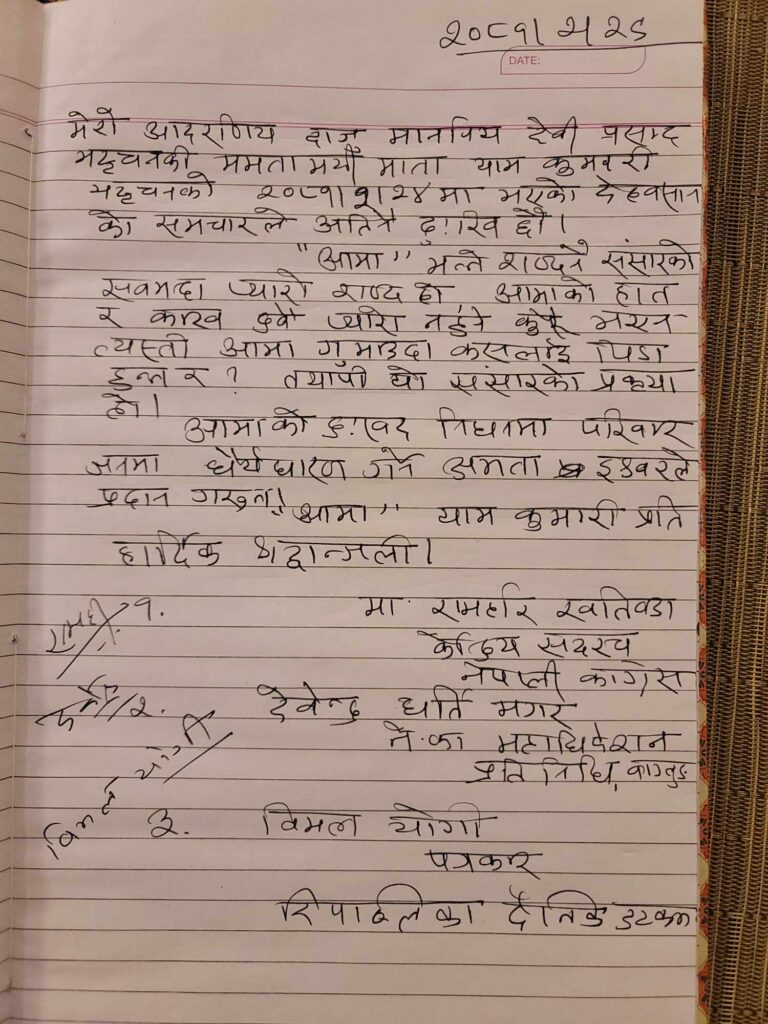 २०८१। २। २९
DATE:
मेरो आदरणिय दाजु माननिय देवी प्रसाद
भट्टचनकी ममतामयी माता याम कुमारी
भट्टचनको २०८१।२।२४ मा भएको देहवसान
को समचारले अतिनै दुःखि छौ।
"आमा" भन्ने शब्दनै संसारको
सवभन्दा प्यारो शब्द हो आमाको हात
र काख दुवै प्यारो नहुने कुरै भएन
त्यस्ती आमा गुमाउदा कसलाई पिडा
हुन्न र ? तथापी यो संसारको प्रकृया
हो।
आमाको दुःखद निधनमा परिवार
जनमा धैर्यधारण गर्ने क्षमता इश्वरले
प्रदान गरुन्! "आमा" याम कुमारी प्रति
हार्दिक श्रद्धान्जली।
१. मा. रामहरि खतिवडा
केन्द्रिय सदस्य
नेपाली कांग्रेस
२. देवेन्द्र घर्ति मगर
ने.का महाधिवेशन
प्रतिनिधि,
विमल योगी
३. विमल योगी
पत्रकार
दैनिक